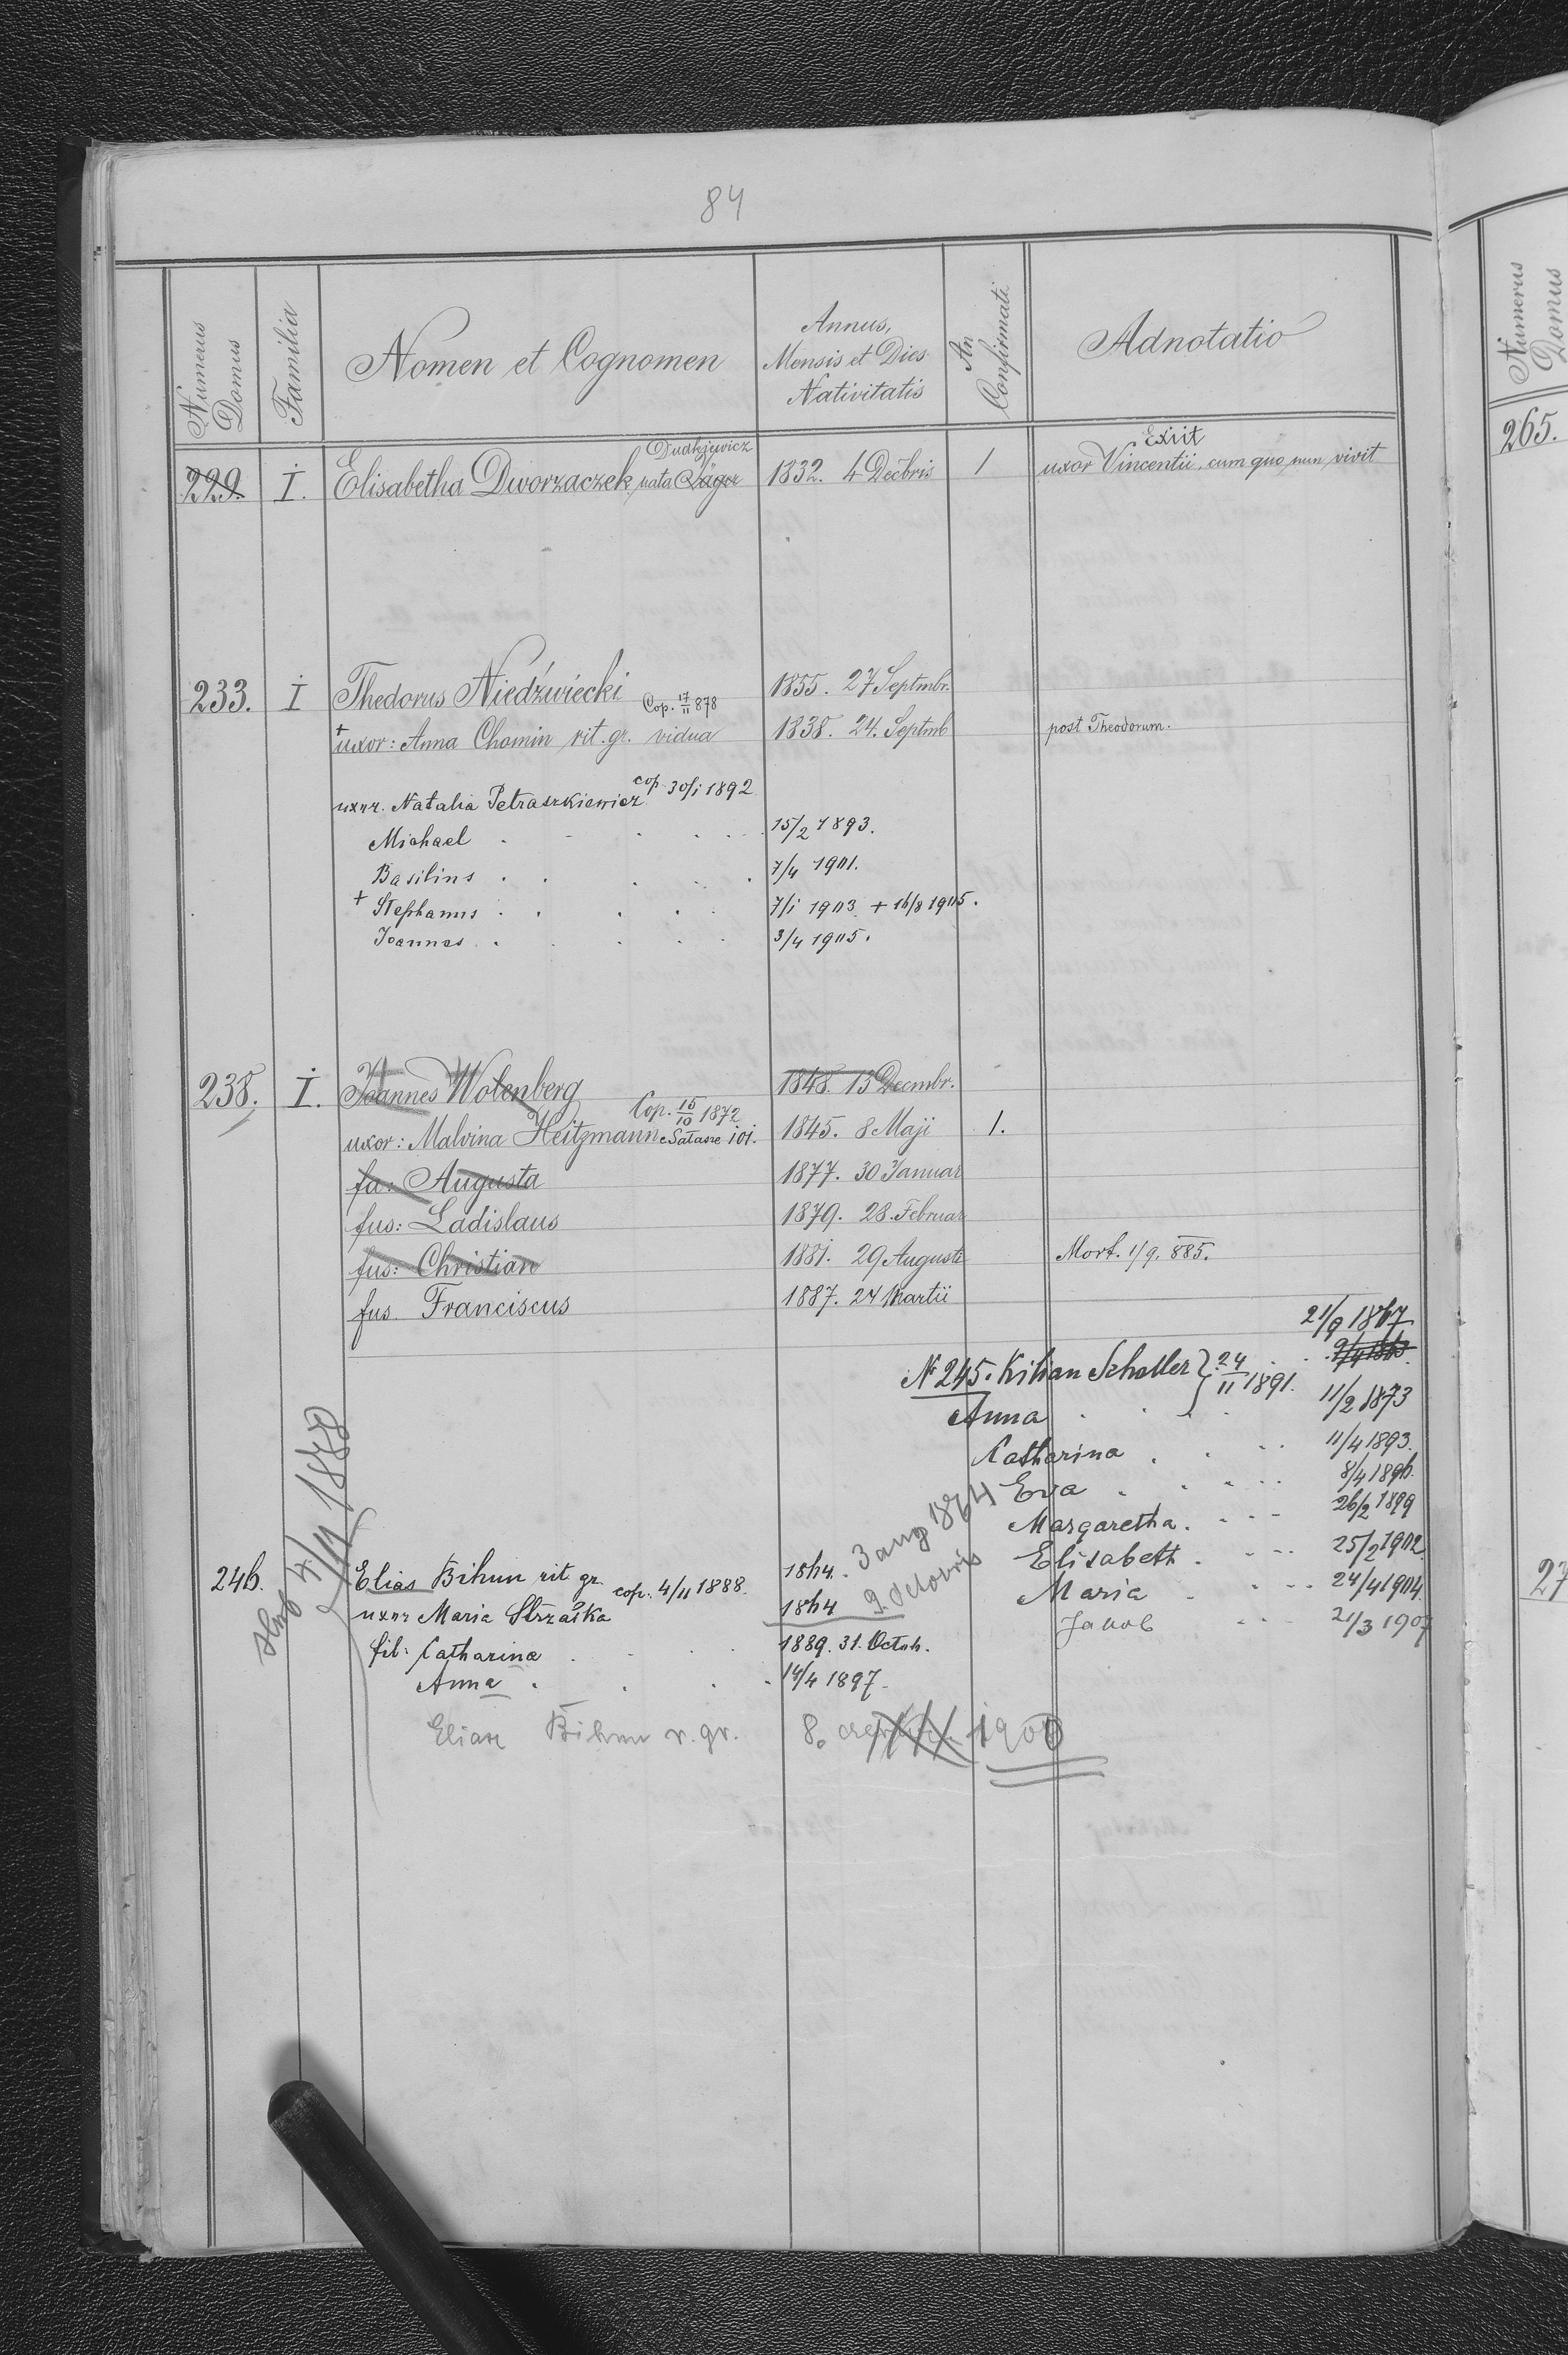 84
Numerus Domus | Familia | Nomen et Cognomen | Annus, Mensis et Dies Nativitatis | An Confirmati | Adnotatio
Dudkiewicz
Exiit
229. I. Elisabetha Dworzaczek nata Jäger 1832. 4 Decbris 1 uxor Vincentii, cum quo nun vivit
233. I Thedorus Niedźwiecki Cop. 17/11 878 1855. 27 Septmbr.
+ uxor: Anna Chomin rit. gr. vidua 1838. 24. Septmb post Theodorum.
uxor. Natalia Petraszkiewicz cop. 30/i 1892
Michael 15/2 1893.
Basilius 7/4 1901.
+ Stephanus 7/i 1903. + 16/8 1905.
Joannes 3/4 1905.
238. I. Joannes Wolenberg 1848. 13 Decmbr.
Cop. 15/10 1872
uxor: Malvina Heitzmann 1845. 8 Maji 1.
fa: Augusta 1877. 30 Januar
fus: Ladislaus 1879. 28. Februar
fus: Christian 1881. 29 Augusti Mort. 1/9. 885.
fus. Franciscus 1887. 24 Martii
21/9 1867
N 245. Kilian Scholler } 24/11 1891.
Anna 11/2 1873
Catharina 11/4 1893.
Eva 8/4 1896.
Margaretha 26/2 1899
Elisabeth 25/2 1902.
Maria 24/4 1904.
Jakob 21/3 1907
4/11 1888
246. Elias Bihun rit. gr. cop. 4/11 1888. 1864. 3 aug 1864
uxor Maria Strzałka 1864 9. Octobris
fil: Catharina 1889. 31. Octob.
Anna 14/4 1897.
Eliasz Bihun r. gr. 8. 1900
Numerus Domus
265.
27